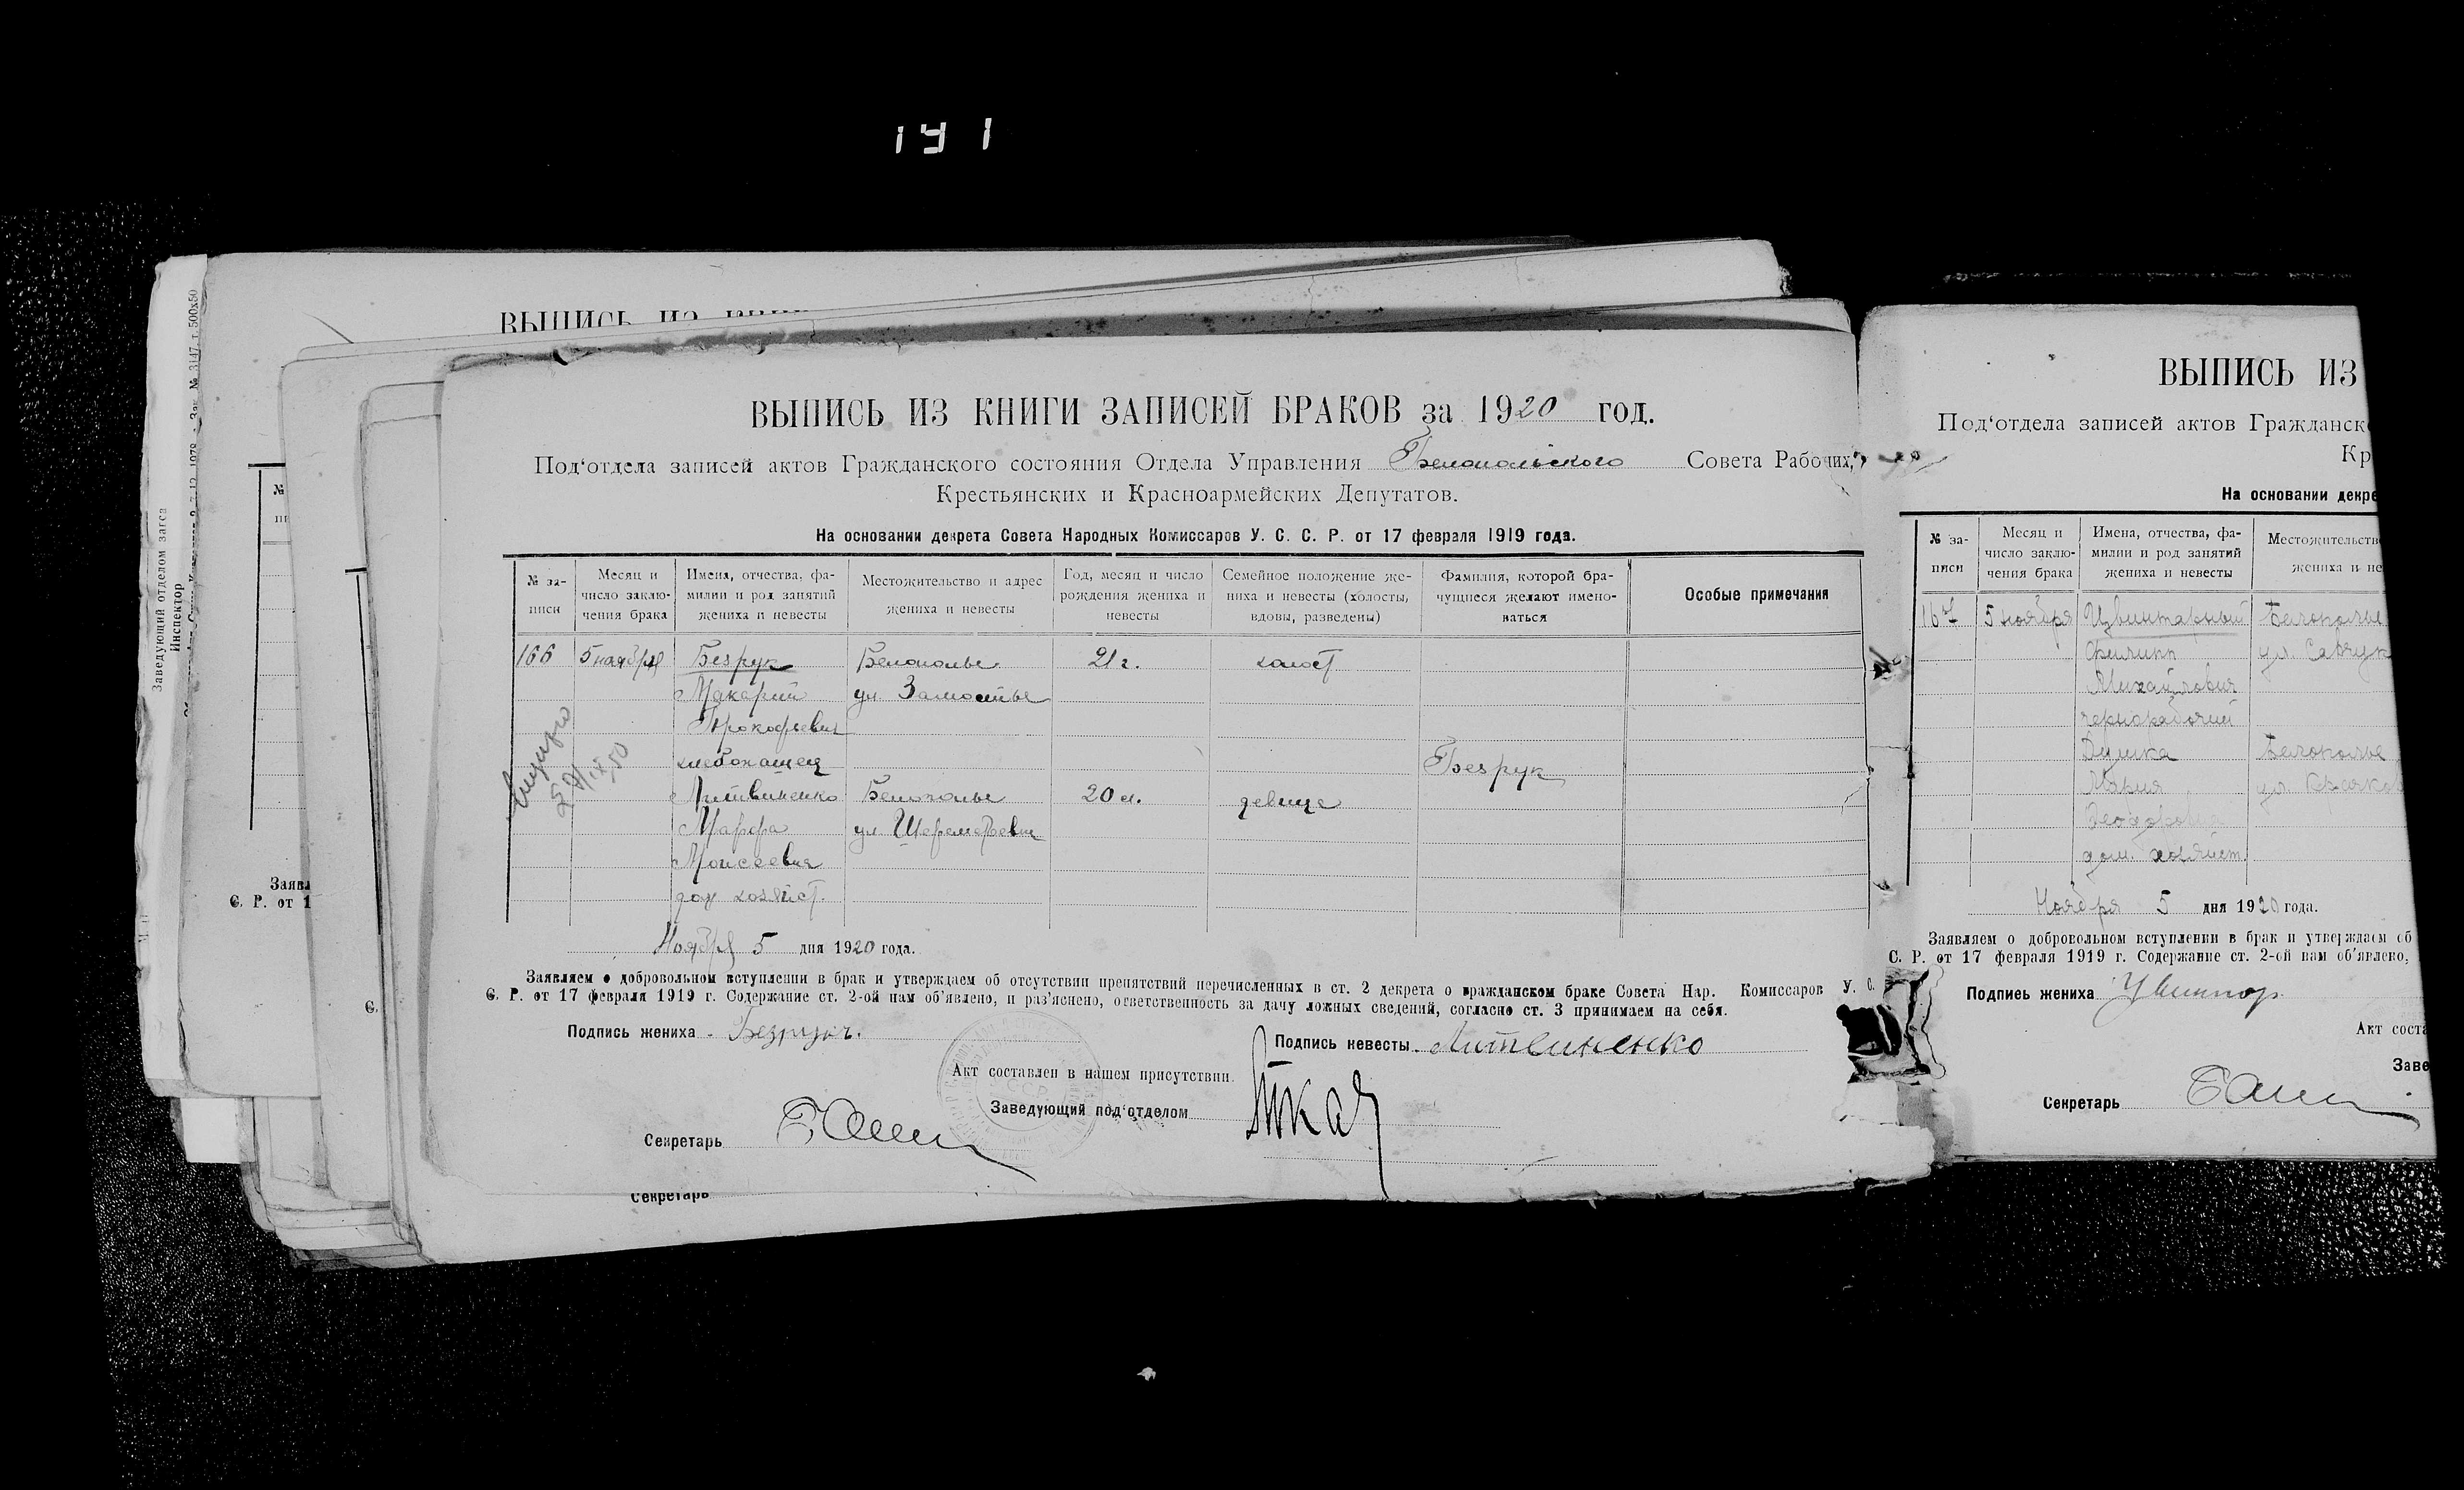 141
ВЫПИСЬ ИЗ КНИГИ ЗАПИСЕЙ БРАКОВ за 1920 год.
Под‘отдела записей актов Гражданского состояния Отдела Управления Белопольского Совета Рабочих,
Крестьянских и Красноармейских Депутатов.
На основании декрета Совета Народных Комиссаров У. С. С. Р. от 17 февраля 1919 года.
№ за-
писи
Месяц и
число заклю-
чения брака
Имена, отчества, фа-
милии и род занятий
жениха и невесты
Местожительство и адрес
жениха и невесты
Год, месяц и число
рождения жениха и
невесты
Семейное положение же-
ниха и невесты (холосты,
вдовы, разведены)
Фамилия, которой бра-
чущиеся желают имено-
ваться
Особые примечания
166 5 ноября Безрук Белополье 21 г. холост
Макарий ул. Замостье
Прокофьевич
хлебопашец Безрук
Литвиненко Белополье 20 л. девица
Марфа
Моисеевна
дом хозяйст.
Ноября 5 дня 1920 года.
Заявляем о добровольном вступлении в брак и утверждаем об отсутствии препятствий перечисленных в ст. 2 декрета о гражданском браке Совета Нар. Комиссаров У. С.
С. Р. от 17 февраля 1919 г. Содержание ст. 2-ой нам об‘явлено, и раз‘яснено, ответственность за дачу ложных сведений, согласно ст. 3 принимаем на себя.
Подпись жениха Безрукъ.
Подпись невесты Литвиненко
Акт составлен в нашем присутствии.
Заведующий под‘отделом
Секретарь
Секретарь
ВЫПИСЬ ИЗ
Заведующий отделом загса
Инспектор
Заявл
С. Р. от 1
ВЫПИСЬ ИЗ
Под‘отдела записей актов Гражданск
Кр
На основании декре
№ за-
писи
Месяц и
число заклю-
чения брака
Имена, отчества, фа-
милии и род занятий
жениха и невесты
Местожительств
жениха и не
167 5 ноября Цвинтарный Белополье
Филипп
Михайлович
чернорабочий
Белополье
Мария
дом. хозяйст.
Ноября 5 дня 1920 года.
Заявляем о добровольном вступлении в брак и утверждаем об
С. Р. от 17 февраля 1919 г. Содержание ст. 2-ой нам об‘явлено,
Подпись жениха
Акт соста
Заве
Секретарь